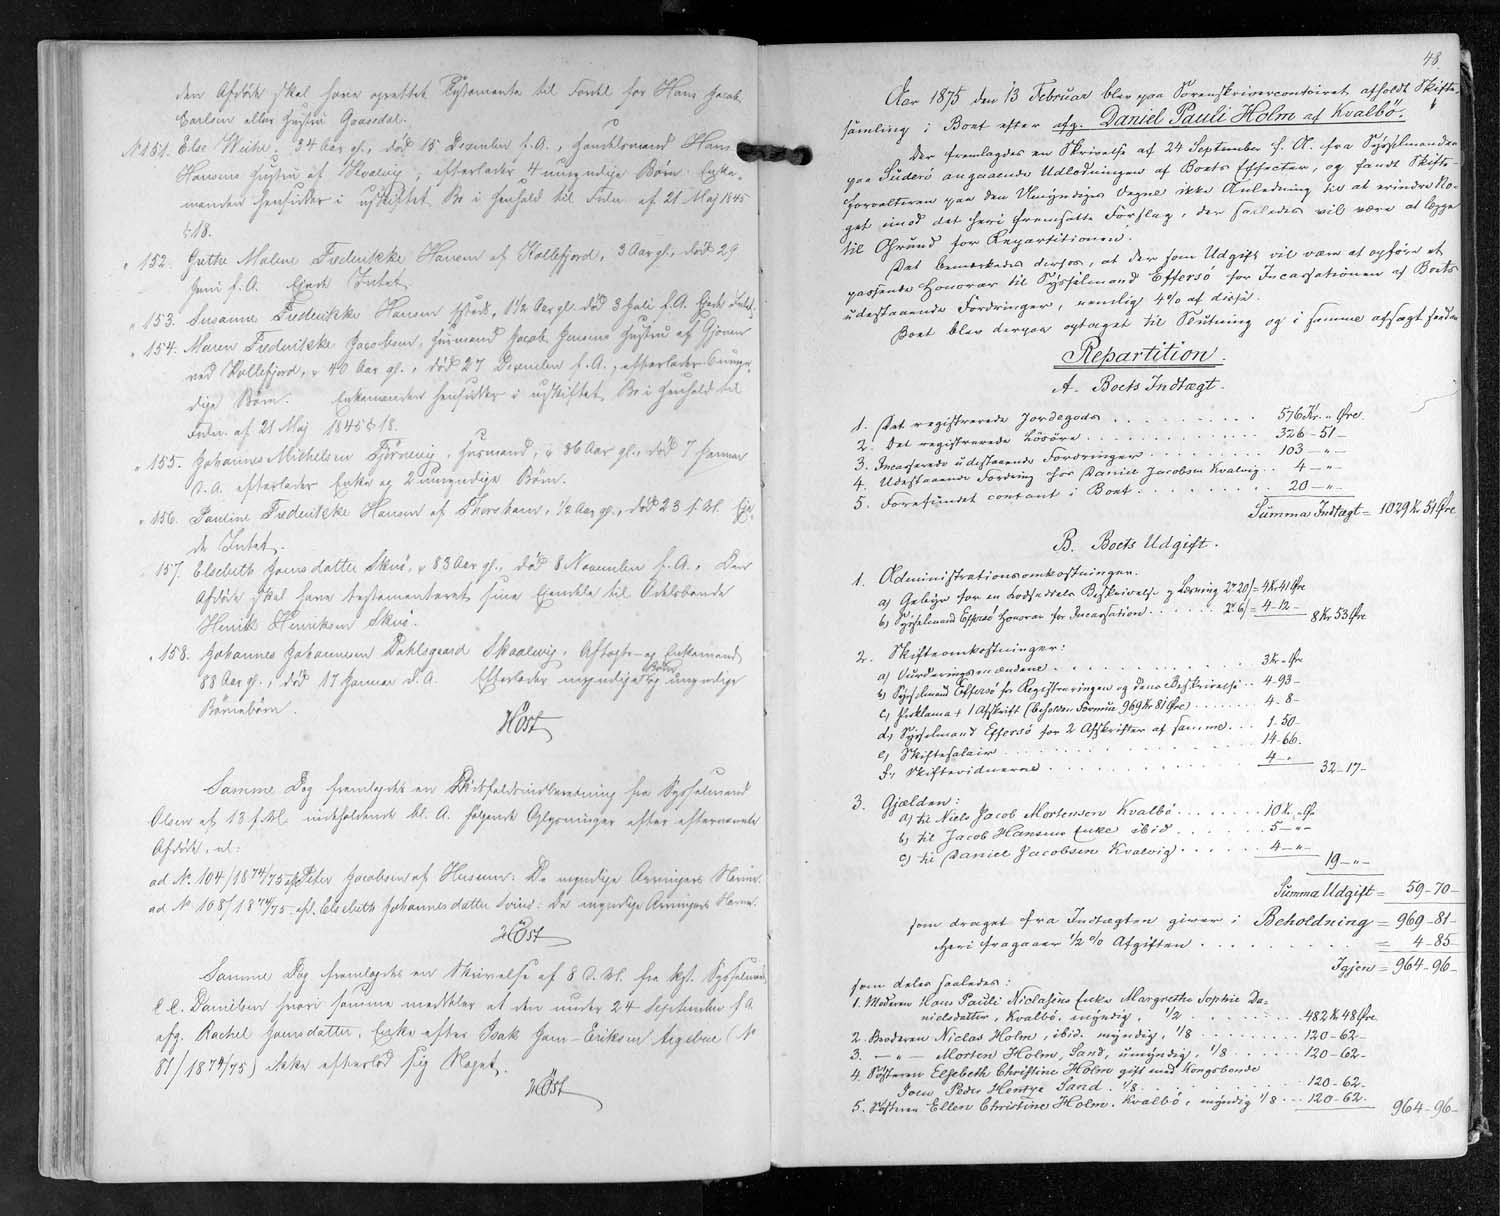 den Afdøde skal have oprettet Testamente til Fordel for Hans Jacob
Carlsen eller Hustru Gaasedal.
N 151. Else Weihe, 34 Aar gl., død 15 December f. A., Handelsmand Hans
Hansens Hustru af Kvalvig, efterlader 4 umyndige Børn. Enke-
manden hensidder i uskiftet Bo i Henhold til Frdn. af 21 Maj 1845
§ 18.
" 152. Malene Frederikke Hansen af Kollefjord, 3 Aar gl., død 29
Juni f. A. Ejede Intet.
" 153. Susanne Frederikke Hansen ifstds, 1½ Aar gl. død 3 Juli f. A. Ejede Intet.
" 154. Maren Frederikke Jacobsen, Huusmand Jacob Jensens Hustru af
ved Kollefjord, 40 Aar gl., død 27 December f. A., efterlader umyn-
dige Børn. Enkemanden hensidder i uskiftet Bo i Henhold til
Frdn. af 21 Maj 1845 § 18.
" 155. Johannes Michelsen Tjørnevig, Huusmand, 36 Aar gl., død 7 Januar
d. A. efterlader Enke og 2 umyndige Børn.
" 156. Pauline Frederikke Hansen af Thorshavn, ½ Aar gl., død 23 f. M. Eje-
de Intet.
157. Elsebeth Joensdatter Skuø, 83 Aar gl., død 8 November f. A. Den
Afdøde skal have testamenteret sine Ejendele til Odelsbonde
Henrik Henriksen Skuø.
" 158. Johannes Johannesen Dahlsgaard Skaalevig, Aftægts- og Enkemand
88 Aar gl., død 17 Januar d. A. Efterlader myndige Børn og umyndige
Børnebørn.
HØst
Samme Dag fremlagdes en Dødsfaldsindberetning fra Sysselmand
Olsen af 13 f. M. indeholdende bl. A. følgende Oplysninger efter efternævnte
Afdøde, nl:
ad N. 104/1874/75 afd. Peter Jacobsen af Husum: De myndige Arvingers Navne.
ad N 108/1874/75 afd. Elsebeth Johannesdatter: de myndige Arvingers Navne.
HØst
Samme Dag fremlagdes en Skrivelse af 8 d. M. fra kst. Sysselmand
C. C. Danielsen hvori samme meddeler at den under 24 September f. A.
afg. Rachel Joensdatter, Enke efter Isak Joen Eriksen (N
87/1874/75) ikke efterlod sig Noget.
HØst
48.
Aar 1875 den 13 Februar blev paa Sorenskrivercontoiret afholdt Skifte-
samling i Boet efter afg. Daniel Pauli Holm af Kvalbö.
Der fremlagdes en Skrivelse af 24 September f. A. fra Sysselmanden
paa Süderö angaaende Udlodningen af Boets Effecter, og fandt Skifte-
forvalteren paa den Umyndiges Vegne ikke Anledning til at erindre No-
get imod det heri fremsatte Forslag, der saaledes vil være at lægge
til Grund for Repartitionen.
Det bemærkedes derhos, at der som Udgift vil være at opføre et
passende Honorar til Sysselmand Effersö for Incassationen af Boets
udestaaende Fordringer, nemlig 4% af disse.
Boet blev derpaa optaget til Slutning og i samme afsagt saadan
Repartition.
A. Boets Indtægt.
1. Det registrerede Jordegods . . . . . 576 Kr. " Öre
2. Det registrerede Lösöre . . . . . 326 - 51 -
3. Incasserede udestaaende Fordringer . . . . . 103 - " -
4. Udestaaende Fordring hos Daniel Jacobsen Kvalvig . . 4 - " -
5. Forefundet contant i Boet . . . . . 20 - " -
Summa Indtægt = 1029 Kr 51 Öre
B. Boets Udgift.
1. Administrationsomkostninger.
a) Gebyr for en Lodseddels Beskrivelse og Læsning 2 r 20 / = 4 Kr 41 Öre
b) Sysselmand Effersö Honorar for Incassation . . . . 2 r 6 / = 4 - 12 - 8 Kr 53 Öre
2. Skifteomkostninger:
a) Vurderingsmændene . . . . . 3 Kr " Öre
b) Sysselmand Effersö for Registreringen og dens Beskrivelse . . 4 - 93 -
c) Proklama + 1 Afskrift (beholden Formue 969 Kr 81 Öre) . . . . 4 - 8 -
d) Sysselmand Effersö for 2 Afskrifter af samme . . . 1 - 50 -
e) Skiftesalair . . . . . 14 - 66 -
f) Skiftevidnerne . . . . . 4 - " - 32 - 17 -
3. Gjælden:
a) til Niels Jacob Mortensen Kvalbö . . . . . 10 Kr. " Ör
b) til Jacob Hansens Enke ibid . . . . . 5 - " -
c) til Daniel Jacobsen Kvalvig . . . . . 4 - " - 19 - " -
Summa Udgift = 59 - 70 -
som draget fra Indtægten giver i Beholdning = 969 - 81 -
Heri fragaaer ½ % Afgiften . . . . . = 4 - 85 -
Igjen = 964 - 96 -
som deles saaledes:
1. Moderen Hans Pauli Niclasens Enke Margrethe Sophie Da-
nielsdatter, Kvalbö, myndig, 1/2 . . . . . 482 K 48 Öre
2. Broderen Niclas Holm, ibid. myndig, 1/8 . . . . . 120 - 62 -
3. - " - Morten Holm, Sand, umyndig, 1/8 . . . . . 120 - 62 -
4. Sösteren Elsebeth Christine Holm gift med Kongsbonde
Joen Peder Hentze Sand. 1/8 . . . . . 120 - 62 -
5. Sösteren Ellen Christine Holm. Kvalbö, myndig 1/8 . . . 120 - 62 - 964 - 96 -